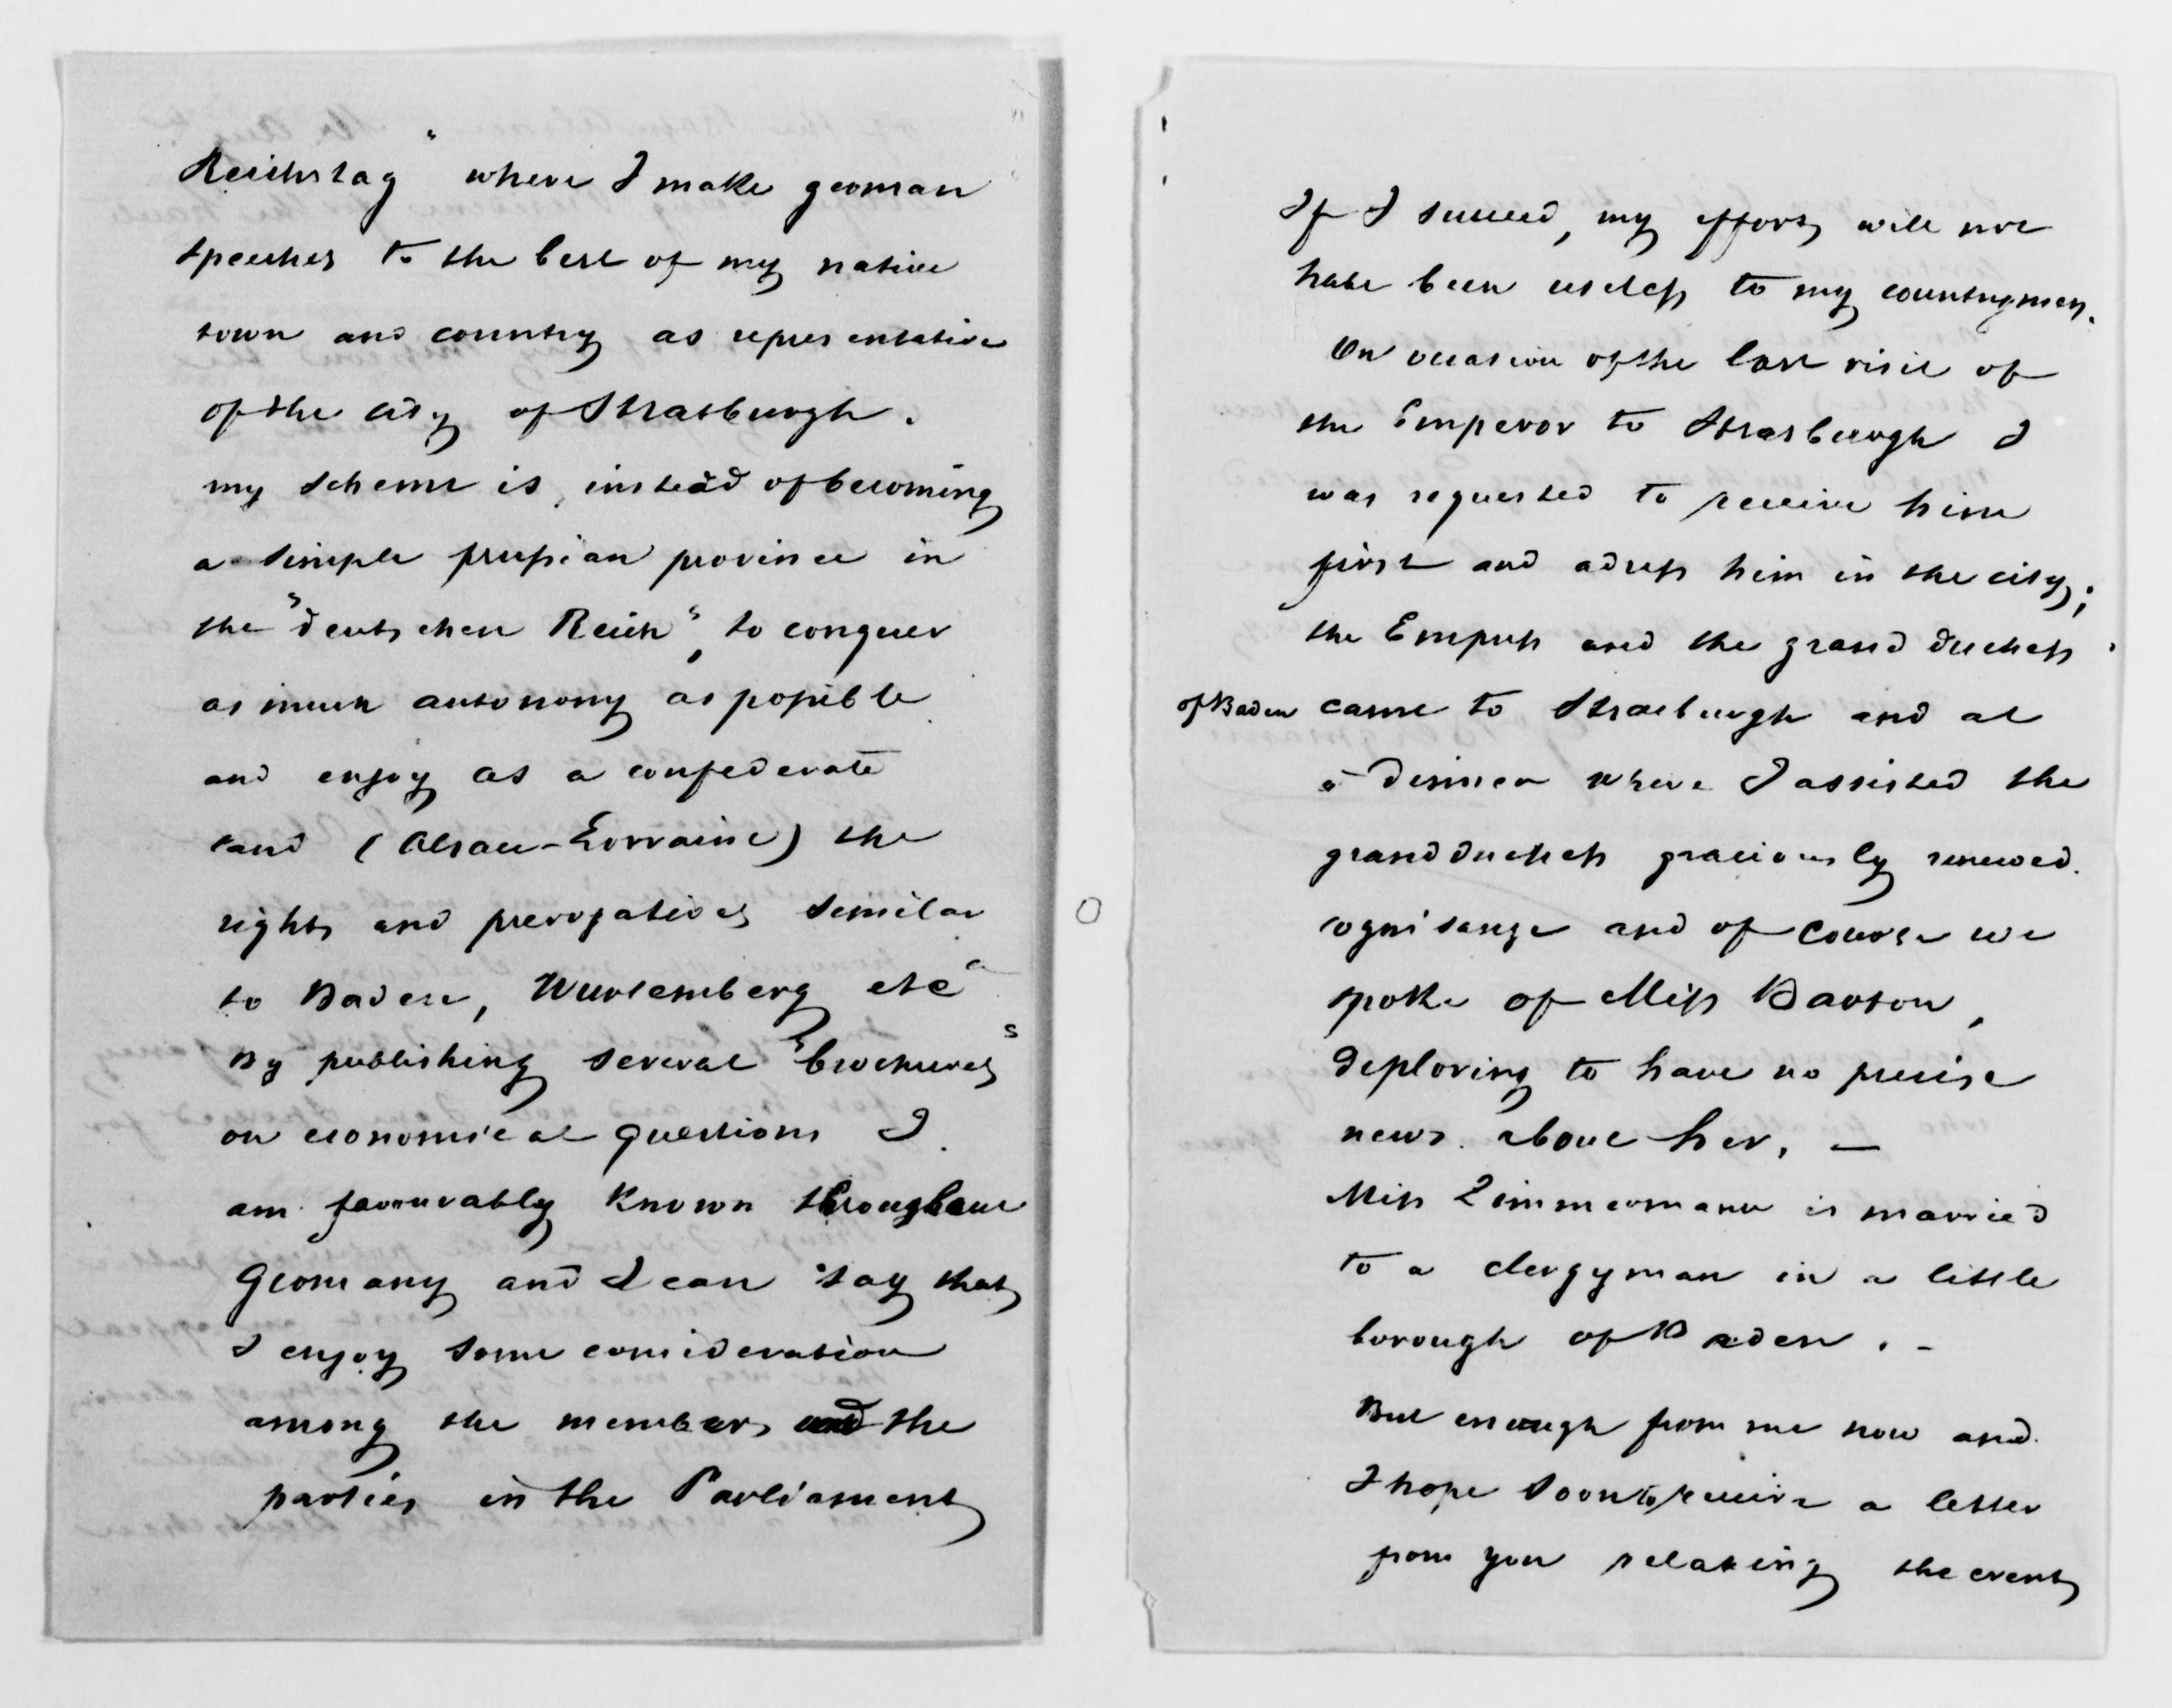 Reichstag" where I make german
speeches to the best of my native
town and country as representative
of the city of Strasburgh.
my scheme is, instead of becoming
a simple prussian province in
the "deutschen Reich", to conquer
as much autonomy as possible
and enjoy as a confederate
land (Alsace-Lorraine) the
rights and prerogatives similar
to Baden, Wurtemberg etc
By publishing several "brochures"
on economical questions I
am favourably known throughout
Germany and I can say that
I enjoy some consideration
among the members and the
parties in the Parliament
If I succeed, my efforts will not
have been useless to my countrymen.
On occasion of the last visit of
the Emperor to Strasburgh I
was requested to receive him
first and adress him in the city;
the Empress and the grand duchess
of Baden came to Strasburgh and at
a dinner where I assisted the
grandduchess graciously renewed
cognisance and of course we
spoke of Miss Barton,
deploring to have no precise
news about her. —
Miss Zimmermann is married
to a clergyman in a little
borough of Baden. -
But enough from me now and
I hope soon to receive a letter
from you relating the events